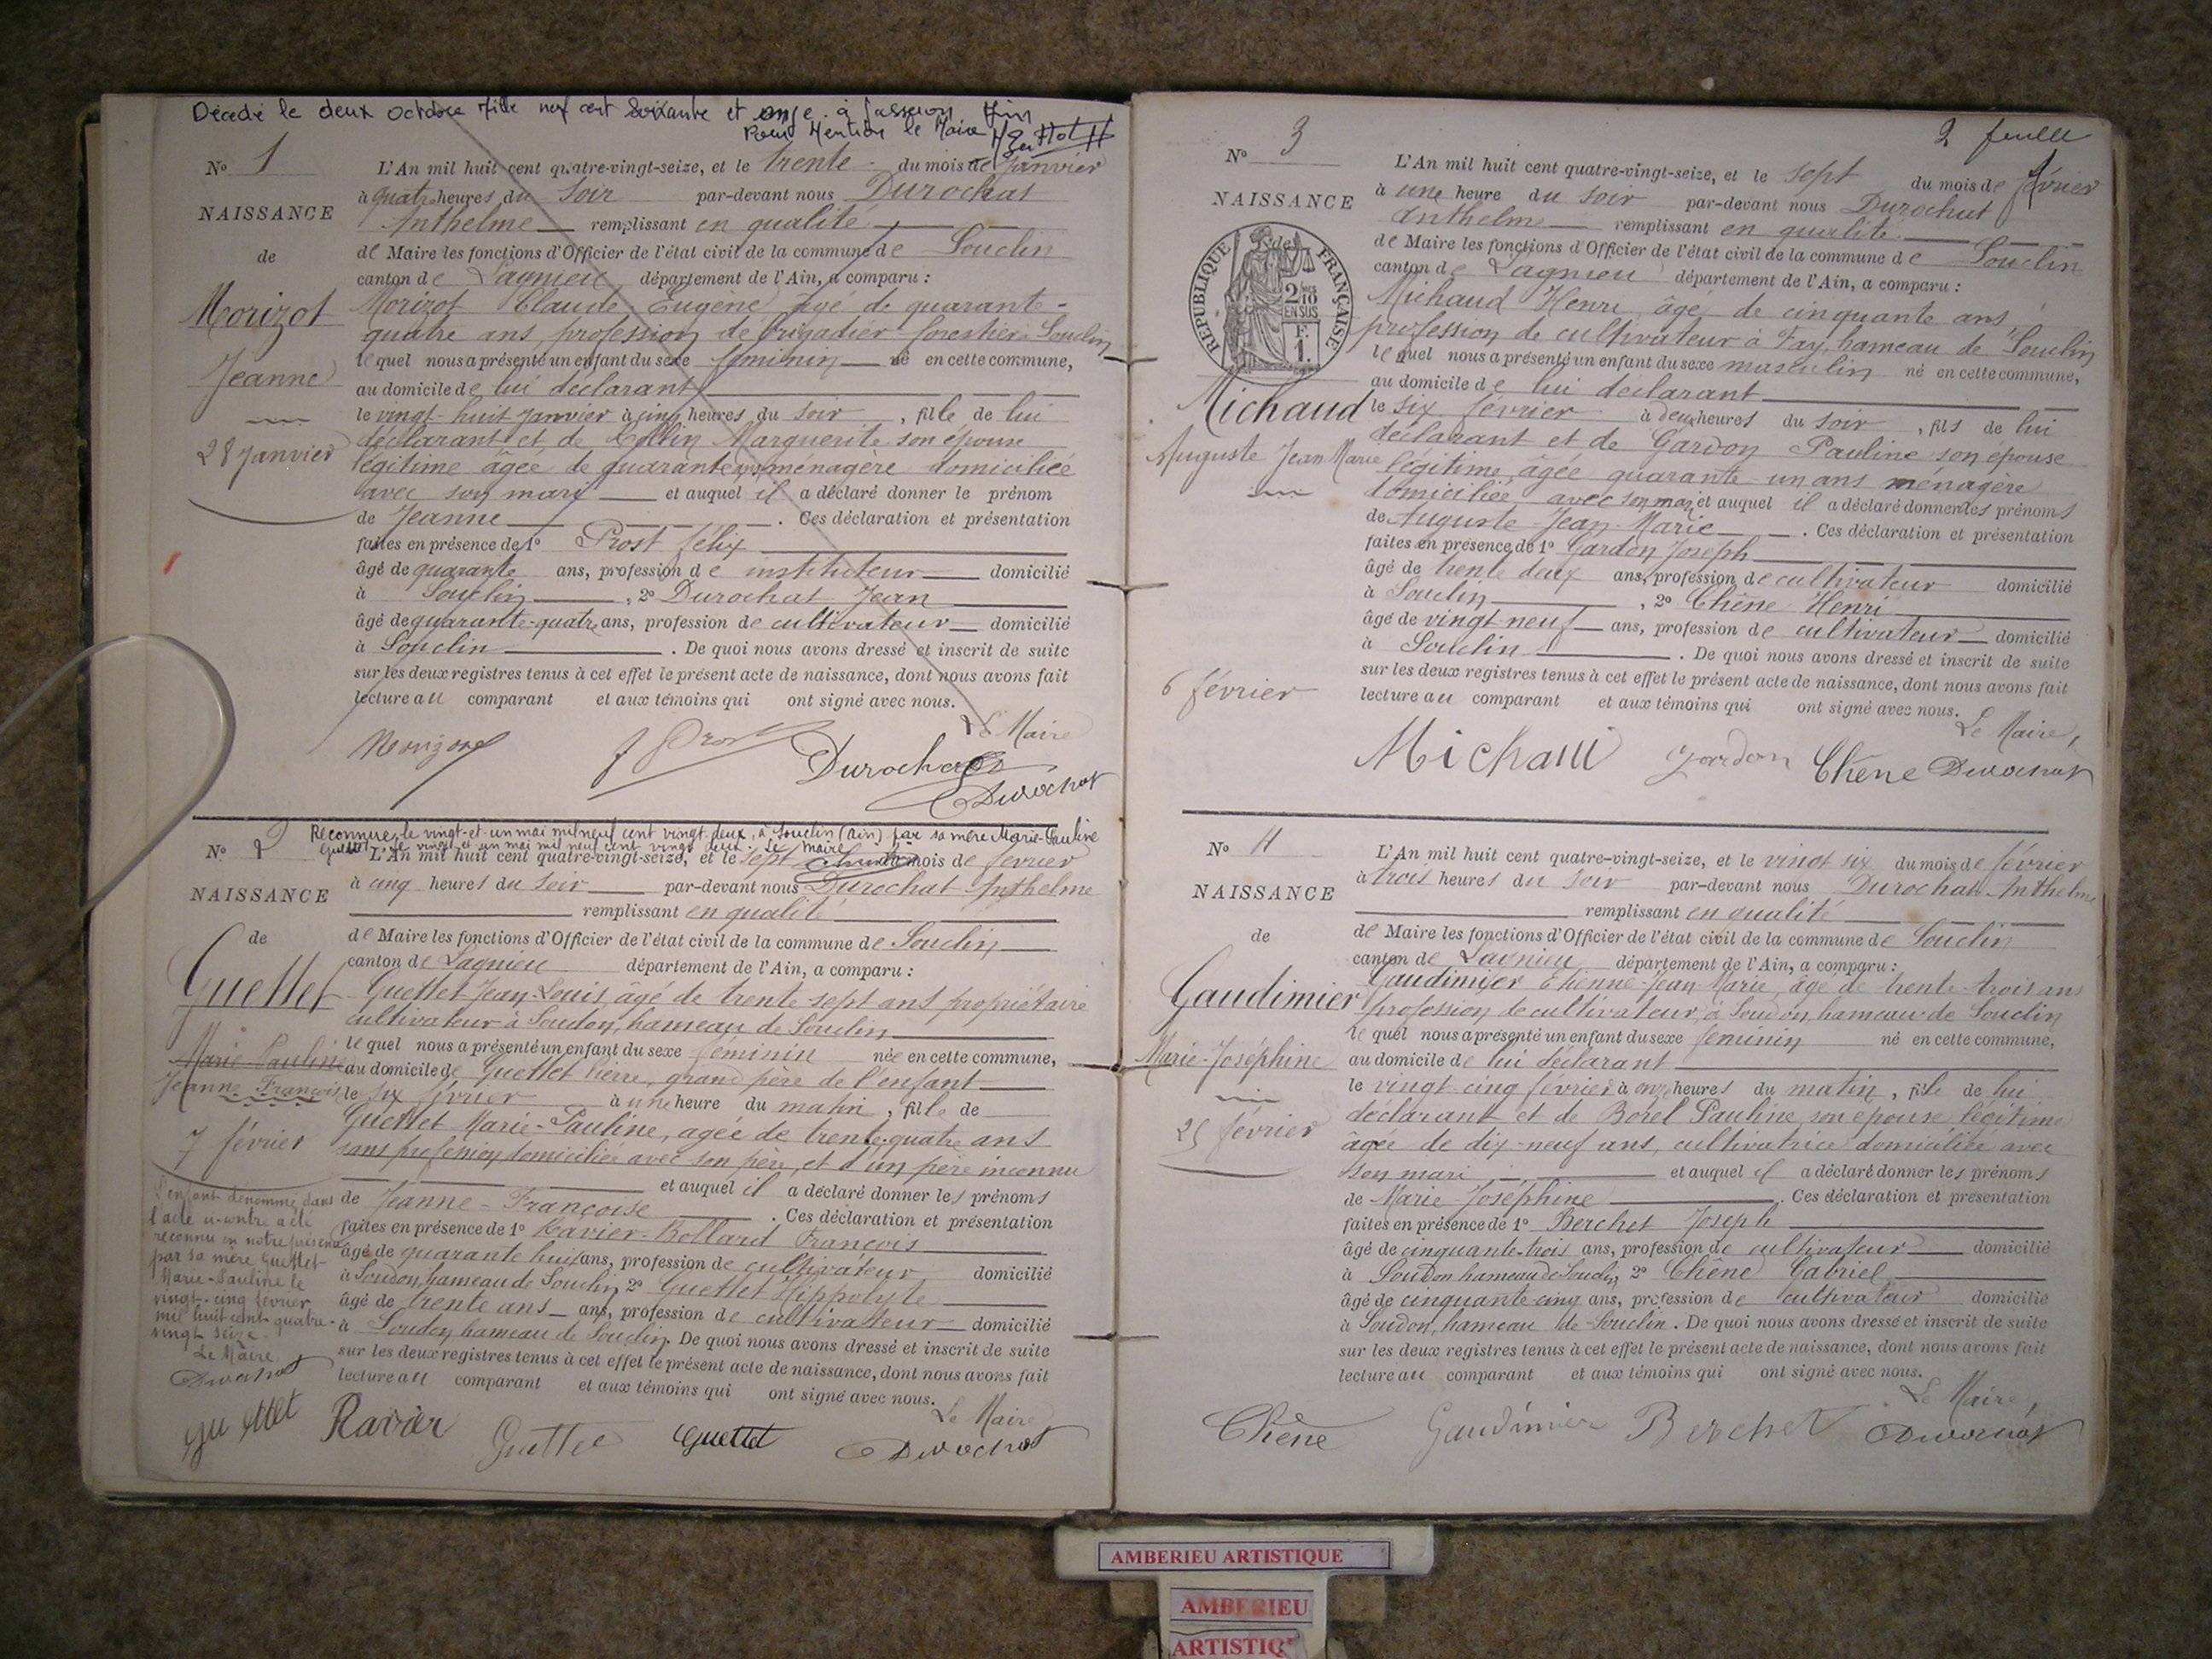 Décédé le deux octobre mille neuf cent soixante et onze à Lasseron Ain
Pour Mention le Maire
N° 1
NAISSANCE
de
Morizot
Jeanne
28 Janvier
L'An mil huit cent quatre-vingt-seize, et le trente du mois de Janvier
à quatre heures du soir par-devant nous Durochat
Anthelme remplissant en qualité
de Maire les fonctions d'Officier de l'état civil de la commune de Souclin
canton de Lagnieu département de l'Ain, a comparu :
Morizot Claude Eugène, âgé de quarante-
quatre ans, profession de brigadier forestier à Souclin
lequel nous a présenté un enfant du sexe féminin né en cette commune,
au domicile de lui déclarant
le vingt-huit Janvier à cinq heures du soir, fille de lui
déclarant et de Collin Marguerite son épouse
légitime âgée de quarante ans ménagère domiciliée
avec son mari et auquel il a déclaré donner le prénom
de Jeanne. Ces déclaration et présentation
faites en présence de 1° Prost félix
âgé de quarante ans, profession de instituteur domicilié
à Souclin, 2° Durochat Jean
âgé de quarante-quatre ans, profession de cultivateur domicilié
à Souclin. De quoi nous avons dressé et inscrit de suite
sur les deux registres tenus à cet effet le présent acte de naissance, dont nous avons fait
lecture au comparant et aux témoins qui ont signé avec nous.
Le Maire
Morizot J Prost Durochat
Durochat
Reconnue le vingt-et-un mai mil neuf cent vingt-deux, à Souclin (Ain) par sa mère Marie-Pauline
Guettet. Le vingt et un mai mil neuf cent vingt deux. Le Maire
N° 2
NAISSANCE
de
Guettet
Marie Pauline
Jeanne Françoise
7 février
L'enfant dénommé dans
l'acte ci-contre a été
reconnu en notre présence
par sa mère Guettet
Marie-Pauline le
vingt-cinq février
mil huit cent quatre-
vingt seize
Le Maire
Durochat
L'An mil huit cent quatre-vingt-seize, et le sept du mois de février
à cinq heures du soir par-devant nous Durochat Anthelme
remplissant en qualité
de Maire les fonctions d'Officier de l'état civil de la commune de Souclin
canton de Lagnieu département de l'Ain, a comparu :
Guettet Jean-Louis, âgé de trente-sept ans propriétaire
cultivateur à Soudon, hameau de Souclin
lequel nous a présenté un enfant du sexe féminin née en cette commune,
au domicile de Guettet Pierre, grand père de l'enfant
le six février à une heure du matin, fille de
Guettet Marie-Pauline, agée de trente-quatre ans
sans profession, domiciliée avec son père, et d'un père inconnu
et auquel il a déclaré donner les prénoms
de Jeanne-Françoise. Ces déclaration et présentation
faites en présence de 1° Ravier-Rollard François
âgé de quarante huit ans, profession de cultivateur domicilié
à Soudon, hameau de Souclin, 2° Guettet Hippolyte
âgé de trente ans ans, profession de cultivateur domicilié
à Soudon hameau de Souclin. De quoi nous avons dressé et inscrit de suite
sur les deux registres tenus à cet effet le présent acte de naissance, dont nous avons fait
lecture au comparant et aux témoins qui ont signé avec nous.
Le Maire
Guettet Ravier Guettet Guettet Durochat
2 feuille
N° 3
NAISSANCE
de
RÉPUBLIQUE FRANÇAISE
2/10 EN SUS
F. 1.
Michaud
Auguste Jean Marie
6 février
L'An mil huit cent quatre-vingt-seize, et le sept du mois de février
à une heure du soir par-devant nous Durochat
Anthelme remplissant en qualité
de Maire les fonctions d'Officier de l'état civil de la commune de Souclin
canton de Lagnieu département de l'Ain, a comparu :
Michaud Henri, âgé de cinquante ans
profession de cultivateur à Fay, hameau de Souclin
lequel nous a présenté un enfant du sexe masculin né en cette commune,
au domicile de lui déclarant
le six février à deux heures du soir, fils de lui
déclarant et de Gardon Pauline son épouse
légitime âgée quarante-un ans ménagère
domiciliée avec son mari et auquel il a déclaré donner les prénoms
de Auguste-Jean-Marie. Ces déclaration et présentation
faites en présence de 1° Gardon Joseph
âgé de trente deux ans, profession de cultivateur domicilié
à Souclin, 2° Chêne Henri
âgé de vingt neuf ans, profession de cultivateur domicilié
à Souclin. De quoi nous avons dressé et inscrit de suite
sur les deux registres tenus à cet effet le présent acte de naissance, dont nous avons fait
lecture au comparant et aux témoins qui ont signé avec nous.
Le Maire,
Michaud Gardon Chêne Durochat
N° 4
NAISSANCE
de
Gaudimier
Marie-Joséphine
25 février
L'An mil huit cent quatre-vingt-seize, et le vingt six du mois de février
à trois heures du soir par-devant nous Durochat Anthelme
remplissant en qualité
de Maire les fonctions d'Officier de l'état civil de la commune de Souclin
canton de Lagnieu département de l'Ain, a comparu :
Gaudimier Etienne-Jean-Marie, âgé de trente-trois ans
profession de cultivateur, à Soudon, hameau de Souclin
lequel nous a présenté un enfant du sexe féminin né en cette commune,
au domicile de lui déclarant
le vingt-cinq février à onze heures du matin, fille de lui
déclarant et de Borel Pauline, son épouse légitime
âgée de dix-neuf ans, cultivatrice domiciliée avec
son mari et auquel il a déclaré donner les prénoms
de Marie-Joséphine. Ces déclaration et présentation
faites en présence de 1° Berchet Joseph
âgé de cinquante-trois ans, profession de cultivateur domicilié
à Soudon hameau de Souclin, 2° Chêne Gabriel
âgé de cinquante cinq ans, profession de cultivateur domicilié
à Soudon, hameau de Souclin. De quoi nous avons dressé et inscrit de suite
sur les deux registres tenus à cet effet le présent acte de naissance, dont nous avons fait
lecture au comparant et aux témoins qui ont signé avec nous.
Le Maire,
Chêne Gaudimier Berchet Durochat
AMBERIEU ARTISTIQUE
AMBERIEU
ARTISTIQ